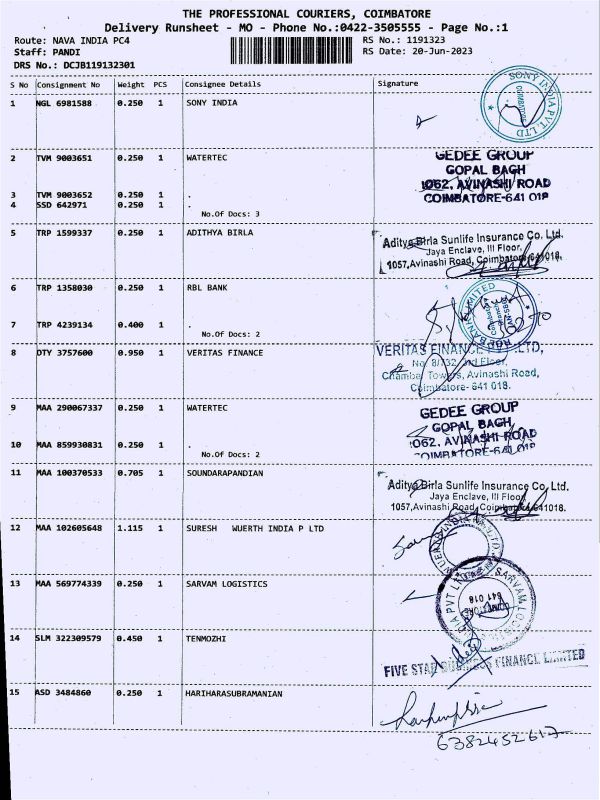 THE PROFESSIONAL COURIERS, COIMBATORE
Delivery Runsheet - MO - Phone No.:0422-3505555 - Page No.:1
Route: NAVA INDIA PC4 RS No.: 1191323
Staff: PANDI RS Date: 20-Jun-2023
DRS No.: DCJB119132301
S No Consignment No Weight PCS Consignee Details Signature
1 NGL 6981588 0.250 1 SONY INDIA
SONY INDIA PVT. LTD
COIMBATORE
2 TVM 9003651 0.250 1 WATERTEC
GEDEE GROUP
GOPAL BAGH
1062, AVINASHI ROAD
COIMBATORE-641 018
3 TVM 9003652 0.250 1 .
4 SSD 642971 0.250 1 .
No.Of Docs: 3
5 TRP 1599337 0.250 1 ADITHYA BIRLA
Aditya Birla Sunlife Insurance Co. Ltd.
Jaya Enclave, III Floor,
1057,Avinashi Road, Coimbatore-641018.
6 TRP 1358030 0.250 1 RBL BANK
7 TRP 4239134 0.400 1 .
No.Of Docs: 2
8 DTY 3757600 0.950 1 VERITAS FINANCE
VERITAS FINANCE LTD,
No. 8/732, 2nd Floor,
Chamber Towers, Avinashi Road,
Coimbatore- 641 018.
9 MAA 290067337 0.250 1 WATERTEC
GEDEE GROUP
GOPAL BAGH
1062, AVINASHI ROAD
COIMBATORE-641 018
10 MAA 859930831 0.250 1 .
No.Of Docs: 2
11 MAA 100370533 0.705 1 SOUNDARAPANDIAN
Aditya Birla Sunlife Insurance Co. Ltd.
Jaya Enclave, III Floor
1057,Avinashi Road, Coimbatore-641018.
12 MAA 102605648 1.115 1 SURESH WUERTH INDIA P LTD
13 MAA 569774339 0.250 1 SARVAM LOGISTICS
SARVAM
641 018
14 SLM 322309579 0.450 1 TENMOZHI
FIVE STAR BUSINESS FINANCE LIMITED
15 ASD 3484860 0.250 1 HARIHARASUBRAMANIAN
6382452617